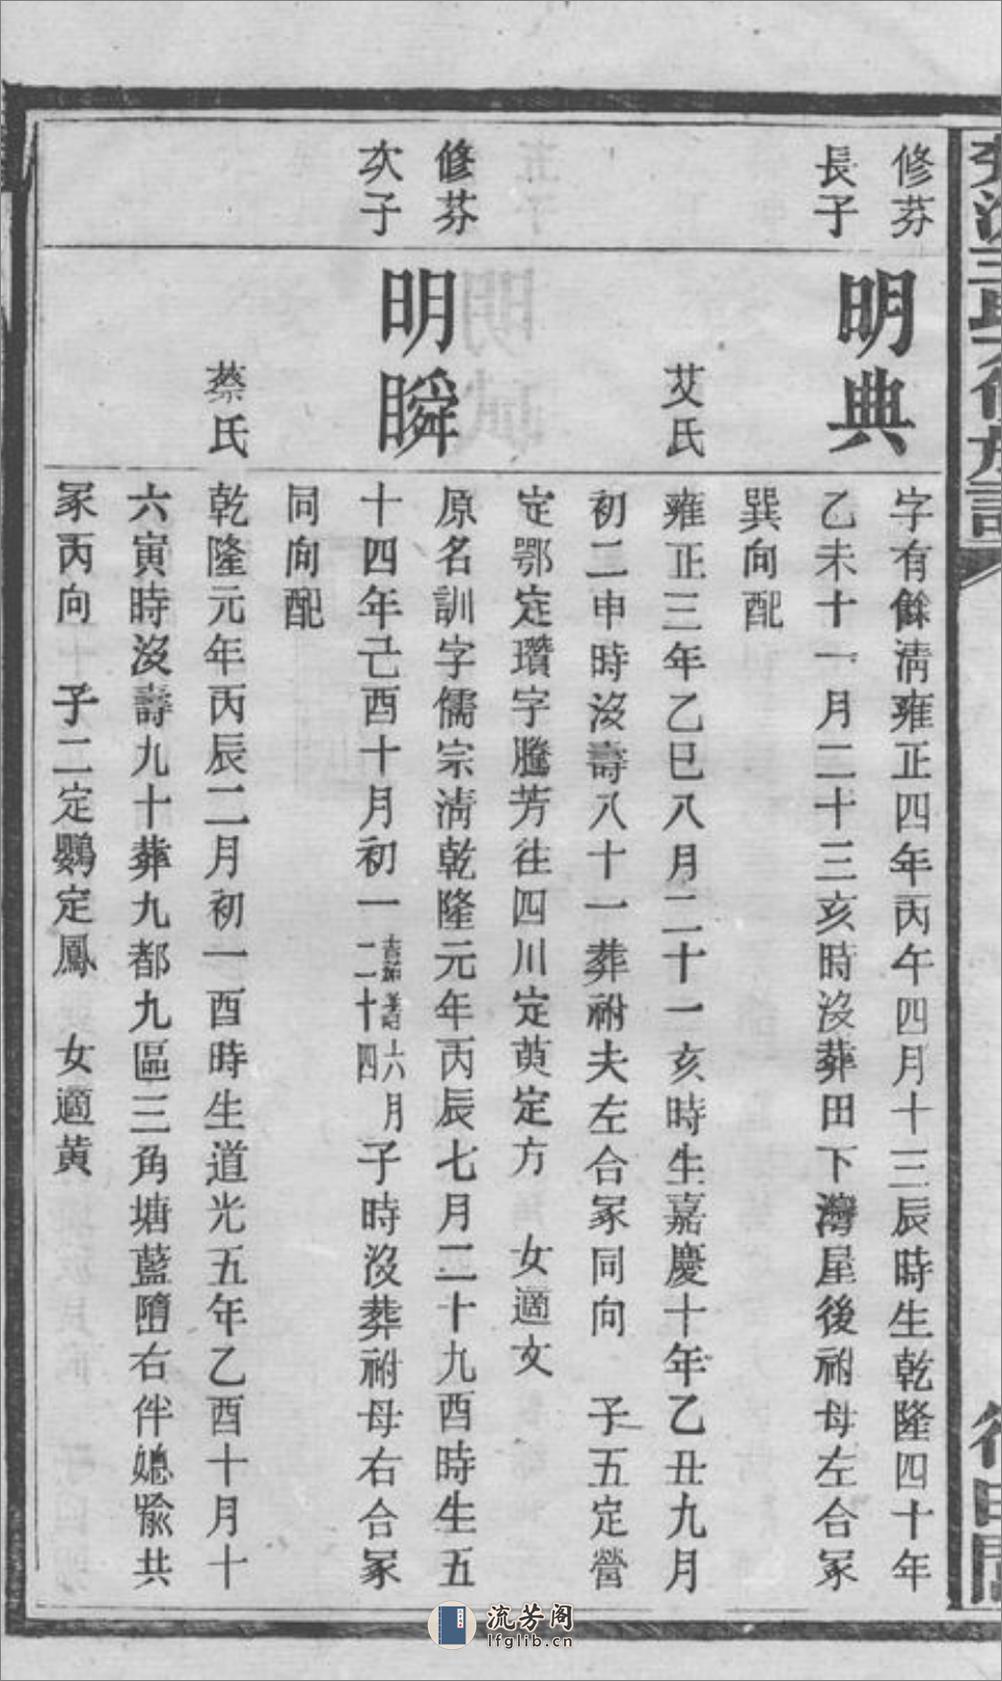 修芬
長子
明典
字有餘清雍正四年丙午四月十三辰時生乾隆四十年
乙未十一月二十三亥時沒葬田下灣屋後祔母左合冢
巽向配
艾氏
雍正三年乙巳八月二十一亥時生嘉慶十年乙丑九月
初二申時沒壽八十一葬祔夫左合冢同向 子五定營
定鄂定瓚字騰芳往四川定萸定方 女適文
修芬
次子
明瞬
原名訓字儒宗清乾隆元年丙辰七月二十九酉時生五
十四年己酉十月初一二十四 六月子時沒葬祔母右合冢
同向配
蔡氏
乾隆元年丙辰二月初一酉時生道光五年乙酉十月十
六寅時沒壽九十葬九都九區三角塘藍墮右伴媳 共
冢丙向 子二定鸚定鳳 女適黃
流芳阁
lfglib.cn